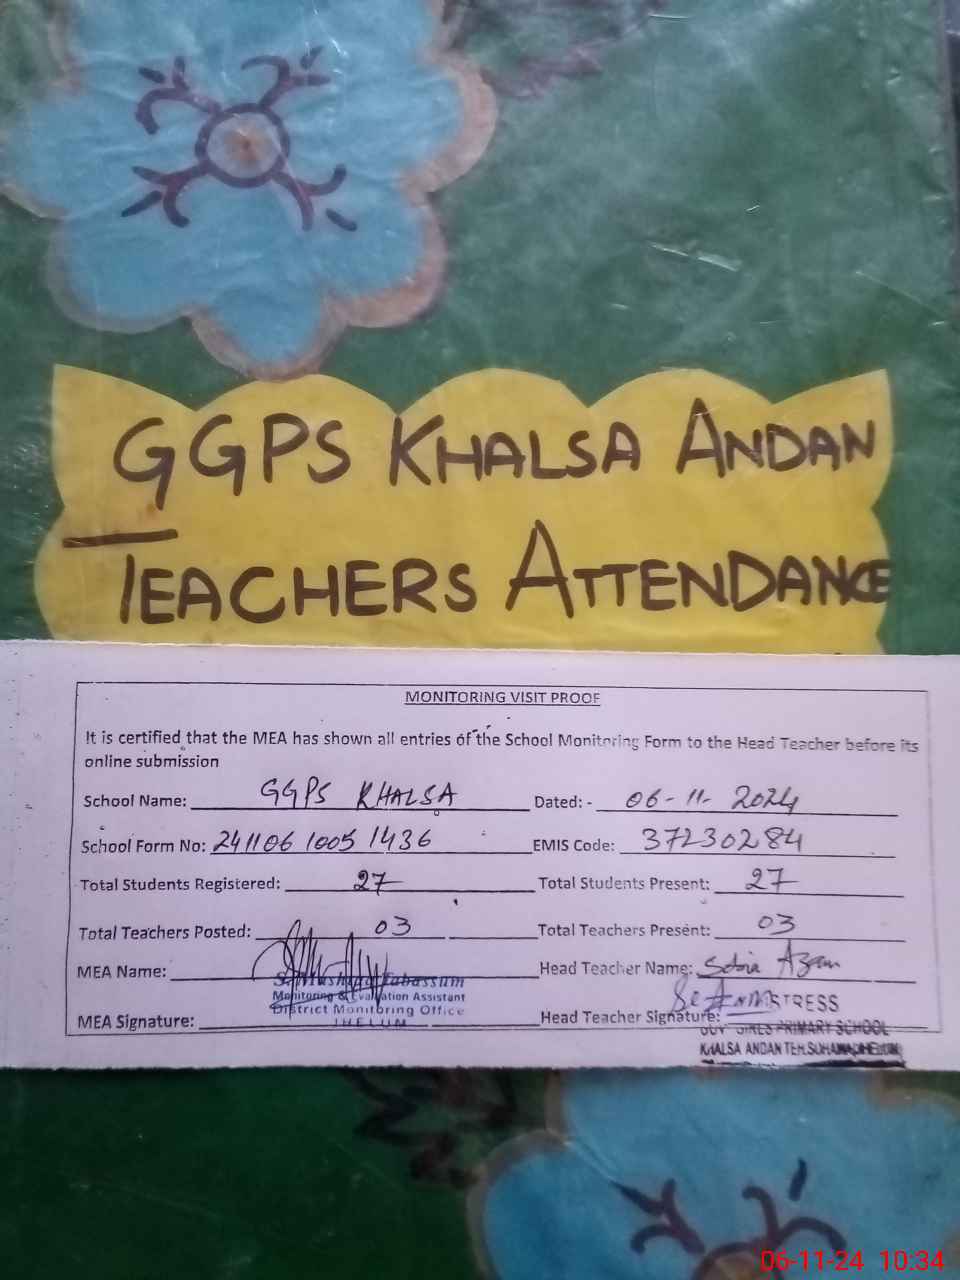 GGPS KHALSA ANDAN
TEACHERS ATTENDANCE
MONITORING VISIT PROOF
It is certified that the MEA has shown all entries of the School Monitoring Form to the Head Teacher before its
online submission
School Name: GGPS KHALSA Dated: - 06-11-2024
School Form No: 241106 1005 1436 EMIS Code: 37230284
Total Students Registered: 27 Total Students Present: 27
Total Teachers Posted: 03 Total Teachers Present: 03
MEA Name: Tabassum Head Teacher Name: Azam
Monitoring & Evaluation Assistant
District Monitoring Office
JHELUM
MEA Signature: Head Teacher Signature: MISTRESS
GOV GIRLS PRIMARY SCHOOL
KHALSA ANDAN TEH.SOHAWA JHELUM
06-11-24 10:34